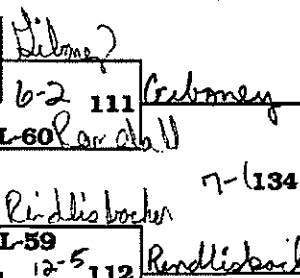 Giboney
6-2 111 Giboney
L-60 Randall
7-1 134
Rindlisbacher
L-59
12-5 112 Rindlisbach